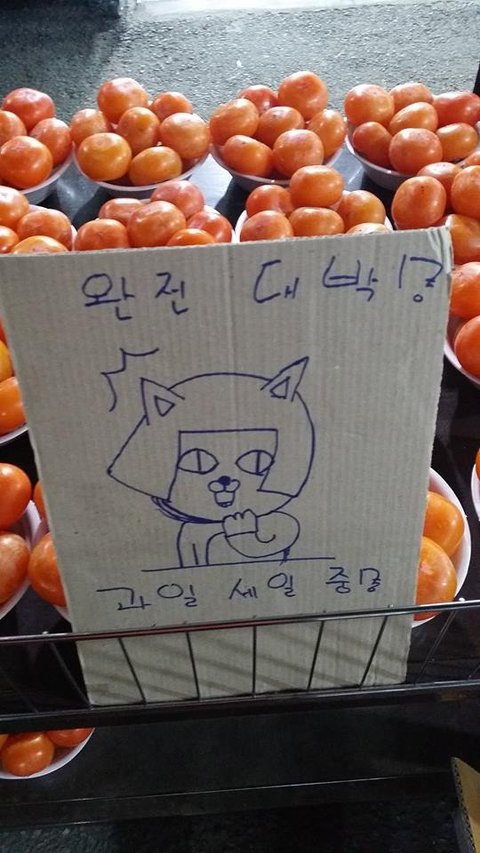 완전 대박임
과일 세일 중임